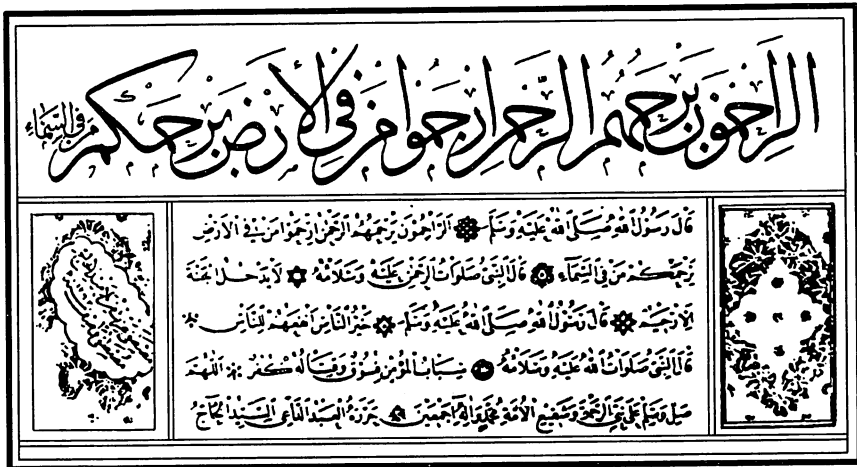 الراحمون يرحمهم الرحمن ارحموا من في الأرض يرحمكم من في السماء
قال رسول الله صلى الله عليه وسلم الراحمون يرحمهم الرحمن ارحموا من في الارض
يرحمكم من في السماء قال النبي صلوات الرحمن عليه وسلامه لا يدخل الجنة
الا رحيم قال رسول الله صلى الله عليه وسلم خير الناس انفعهم للناس
قال النبي صلوات الله عليه وسلامه سباب المؤمن فسوق وقتاله كفر اللهم
صل وسلم على نبي الرحمة وشفيع الامة محمد وآله اجمعين حرره العبد الداعي السيد الحاج